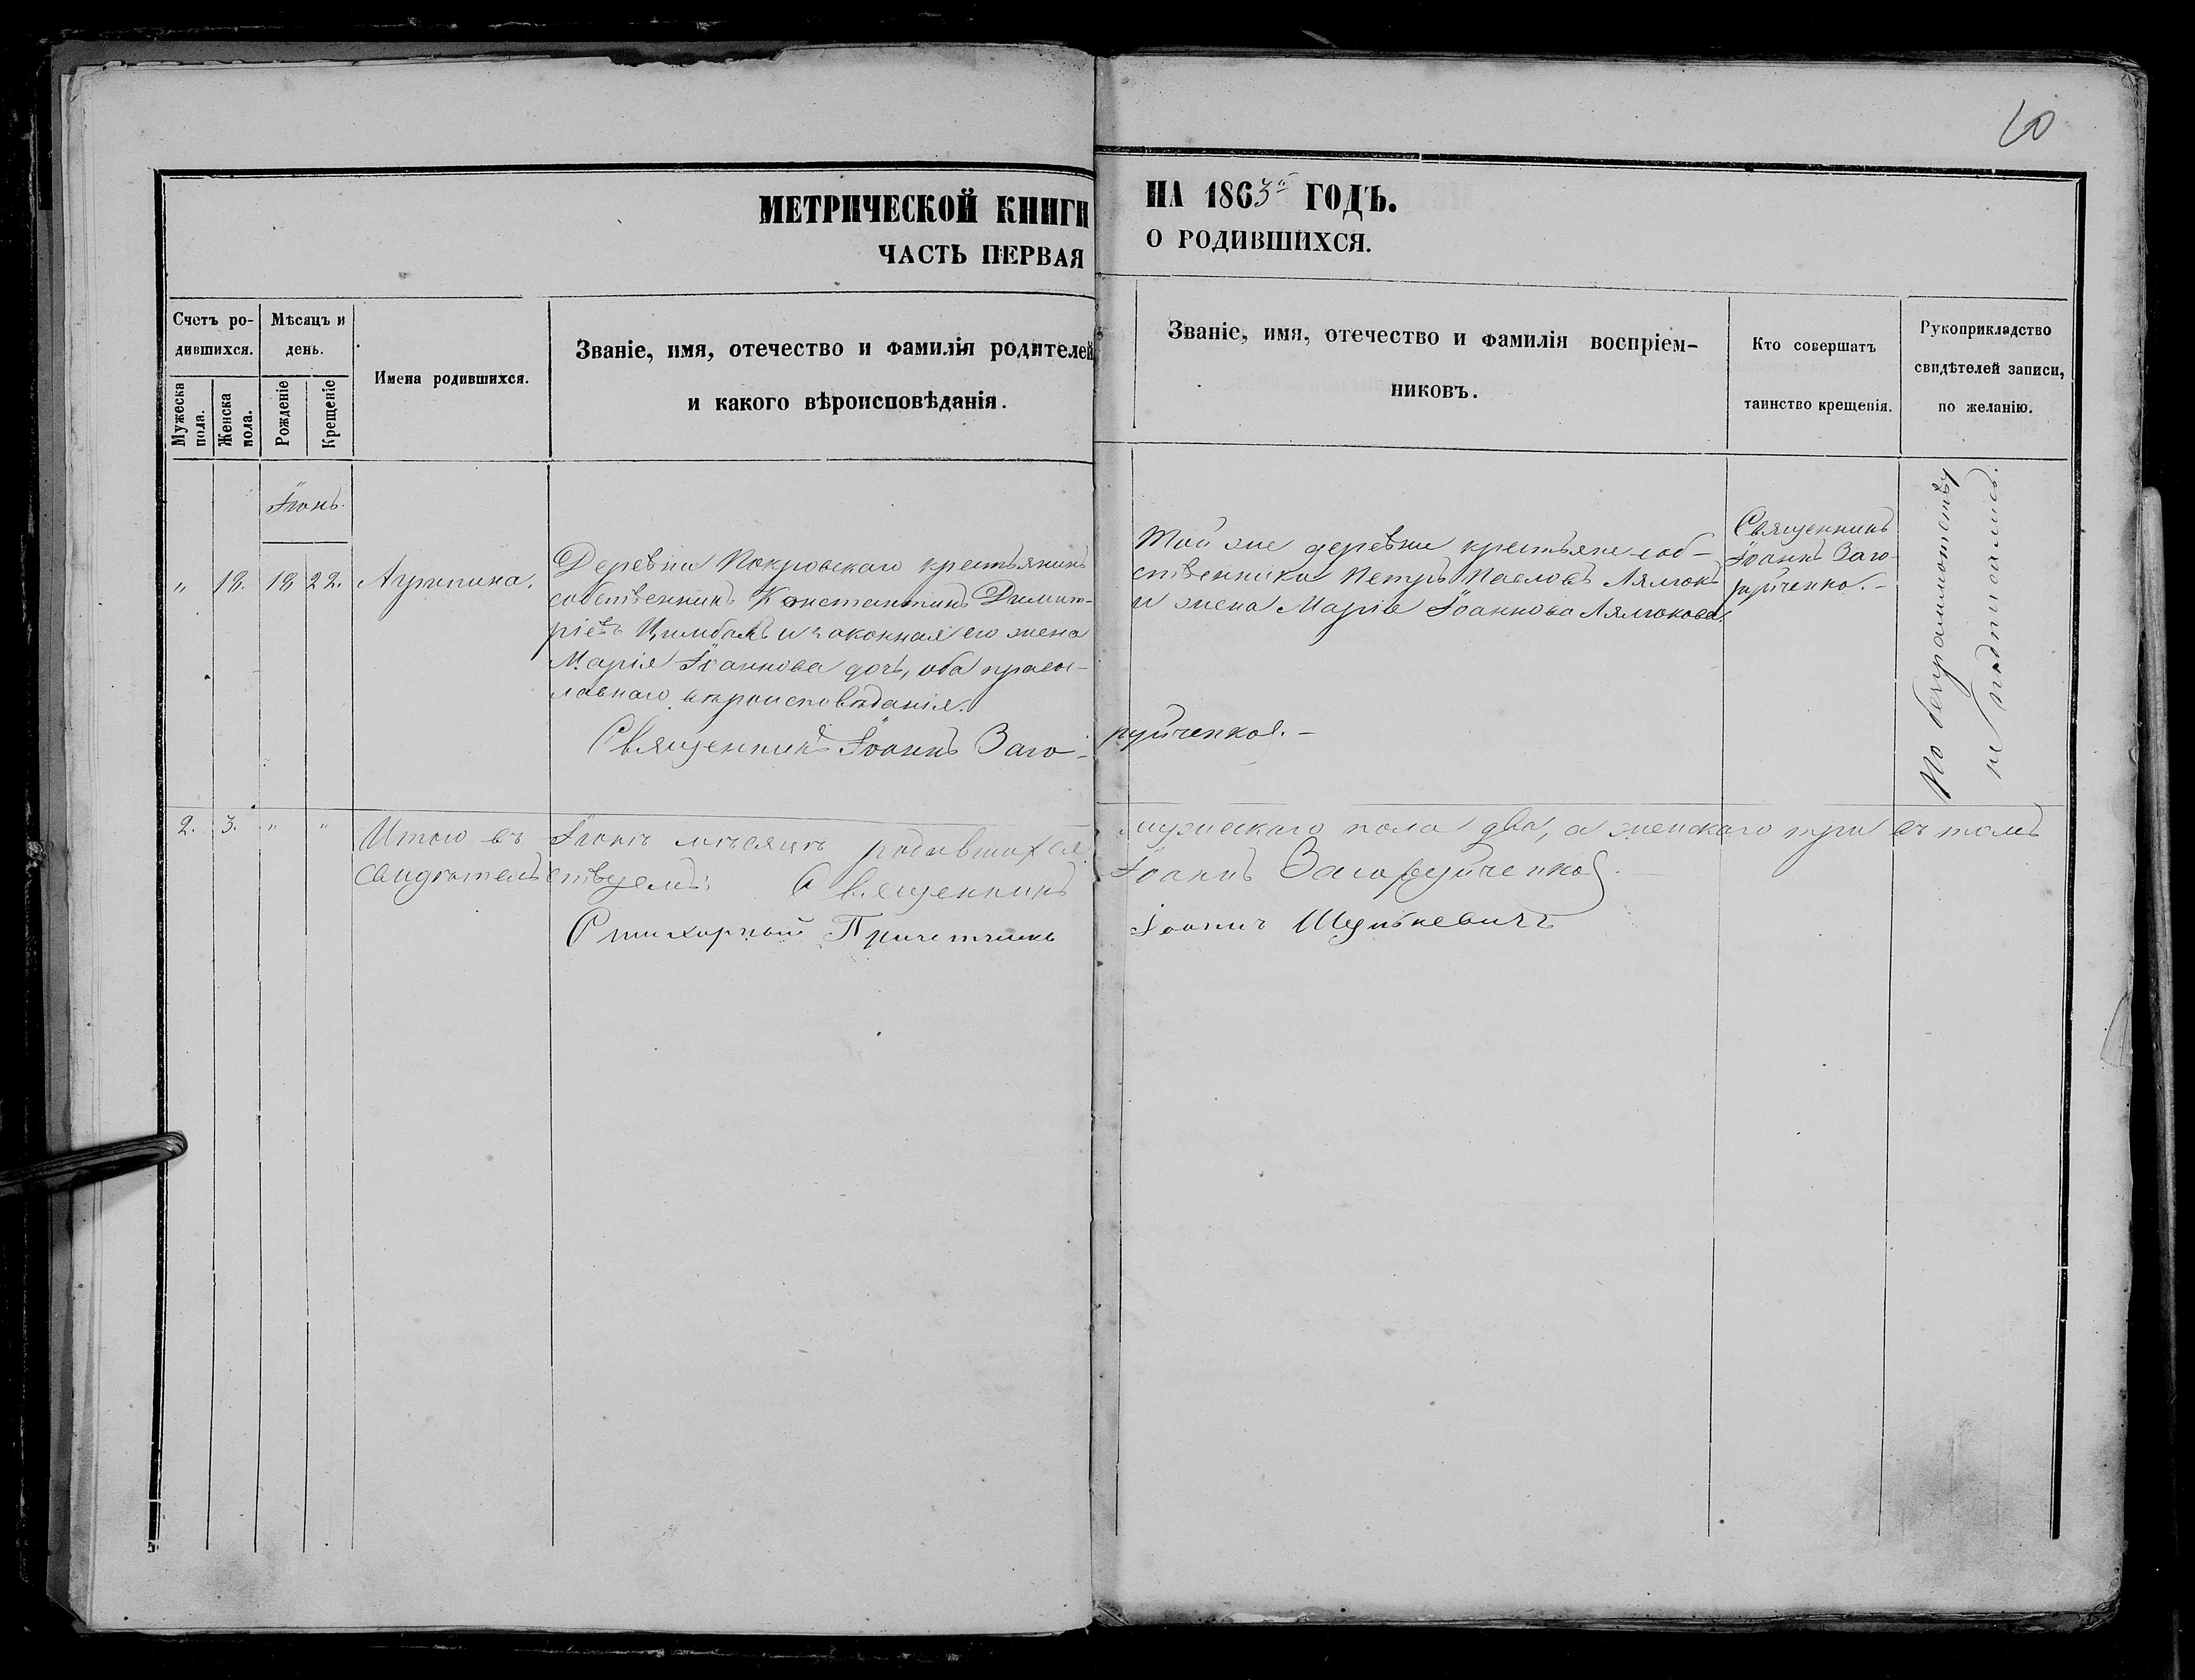 10
МЕТРИЧЕСКОЙ КНИГИ НА 1863й ГОДЪ.
ЧАСТЬ ПЕРВАЯ О РОДИВШИХСЯ.
Счетъ ро-
дившихся.
Мужеска
пола.
Женска
пола.
Мѣсяцъ и
день.
Рожденіе
Крещеніе
Имена родившихся.
Званіе, имя, отечество и фамилія родителей
и какого вѣроисповѣданія.
Званіе, имя, отечество и фамилія воспріем-
никовъ.
Кто совершатъ
таинство крещенія.
Рукоприкладство
свидѣтелей записи,
по желанію.
Іюнь.
„ 18. 18 22. Агрипина.
Деревни Покровскаго крестьянинъ
собственникъ Константинъ Димит-
ріевъ Цимбалъ и законная его жена
Марія Іоаннова дочь, оба право-
славнаго вѣроисповѣданія.
Той же деревни крестьяне соб-
ственники Петръ Павловъ Лялюкъ
и жена Марія Іоаннова Лялюкова.
Священникъ
Іоаннъ Заго-
руйченко.-
По безграмотству
не подписались.
Священникъ Іоаннъ Заго- руйченко.-
2. 3. „ „ Итого въ Іюнѣ мѣсяцѣ родившихся мужескаго пола два, а женскаго три въ томъ
свидѣтельствуемъ: Священникъ Іоаннъ Загоруйченко.
Стихарный Причетникъ Іоаннъ Шулькевичъ